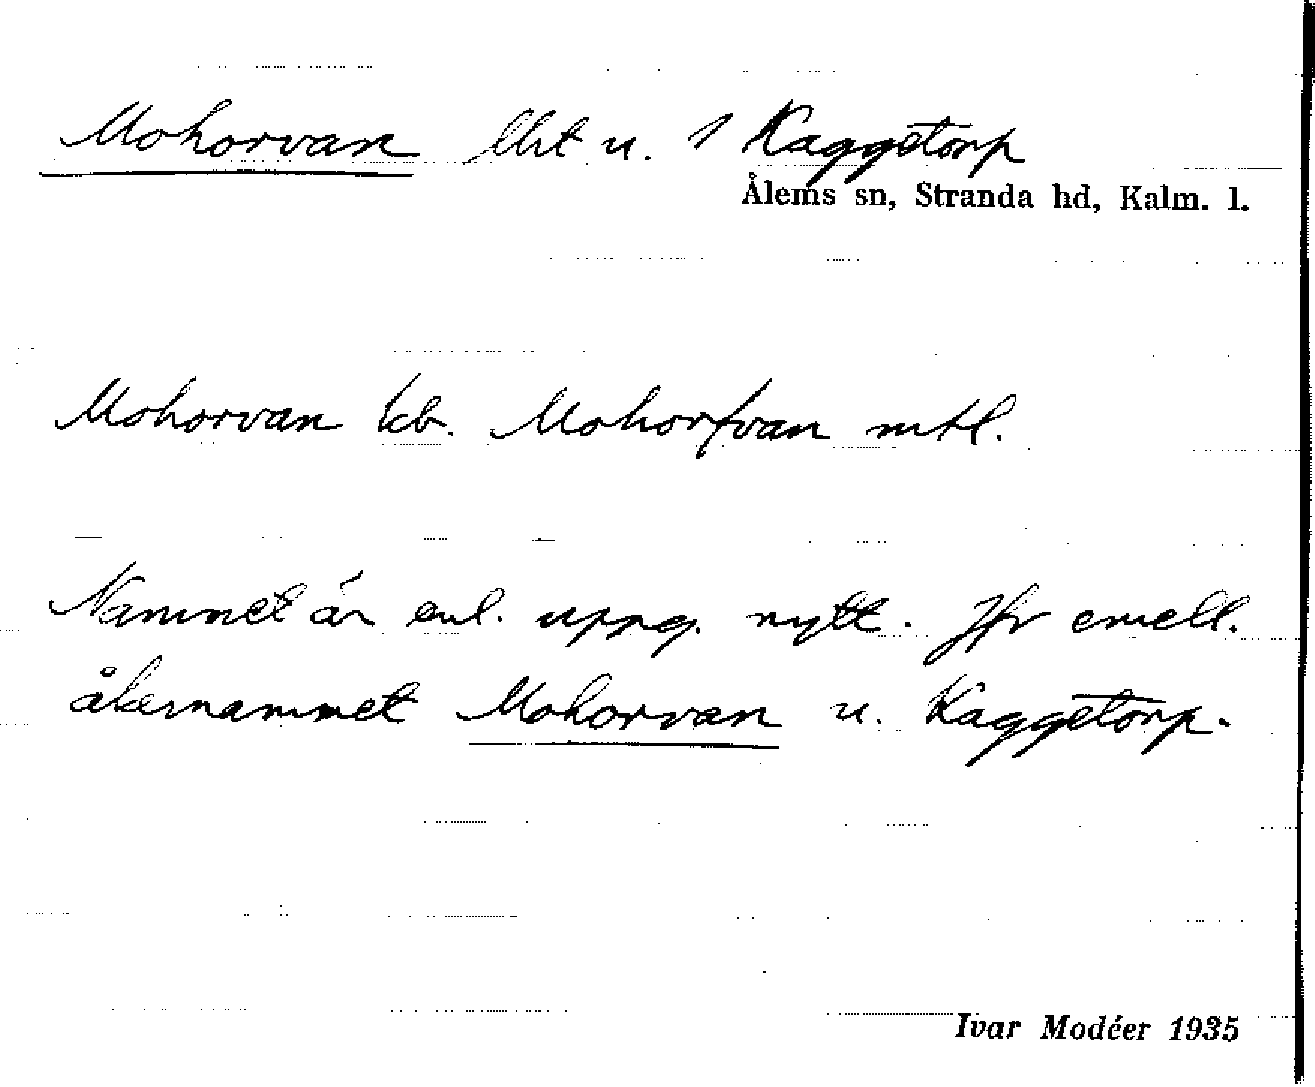 Mohorvan lht u. 1 Kaggetorp
Ålems sn, Stranda hd, Kalm. l.
Mohorvan kb. Mohorfvan mtl.
Namnet är enl. uppg. nytt. Jfr emell.
åkernamnet Mohorvan u. Kaggetorp.
Ivar Modéer 1935